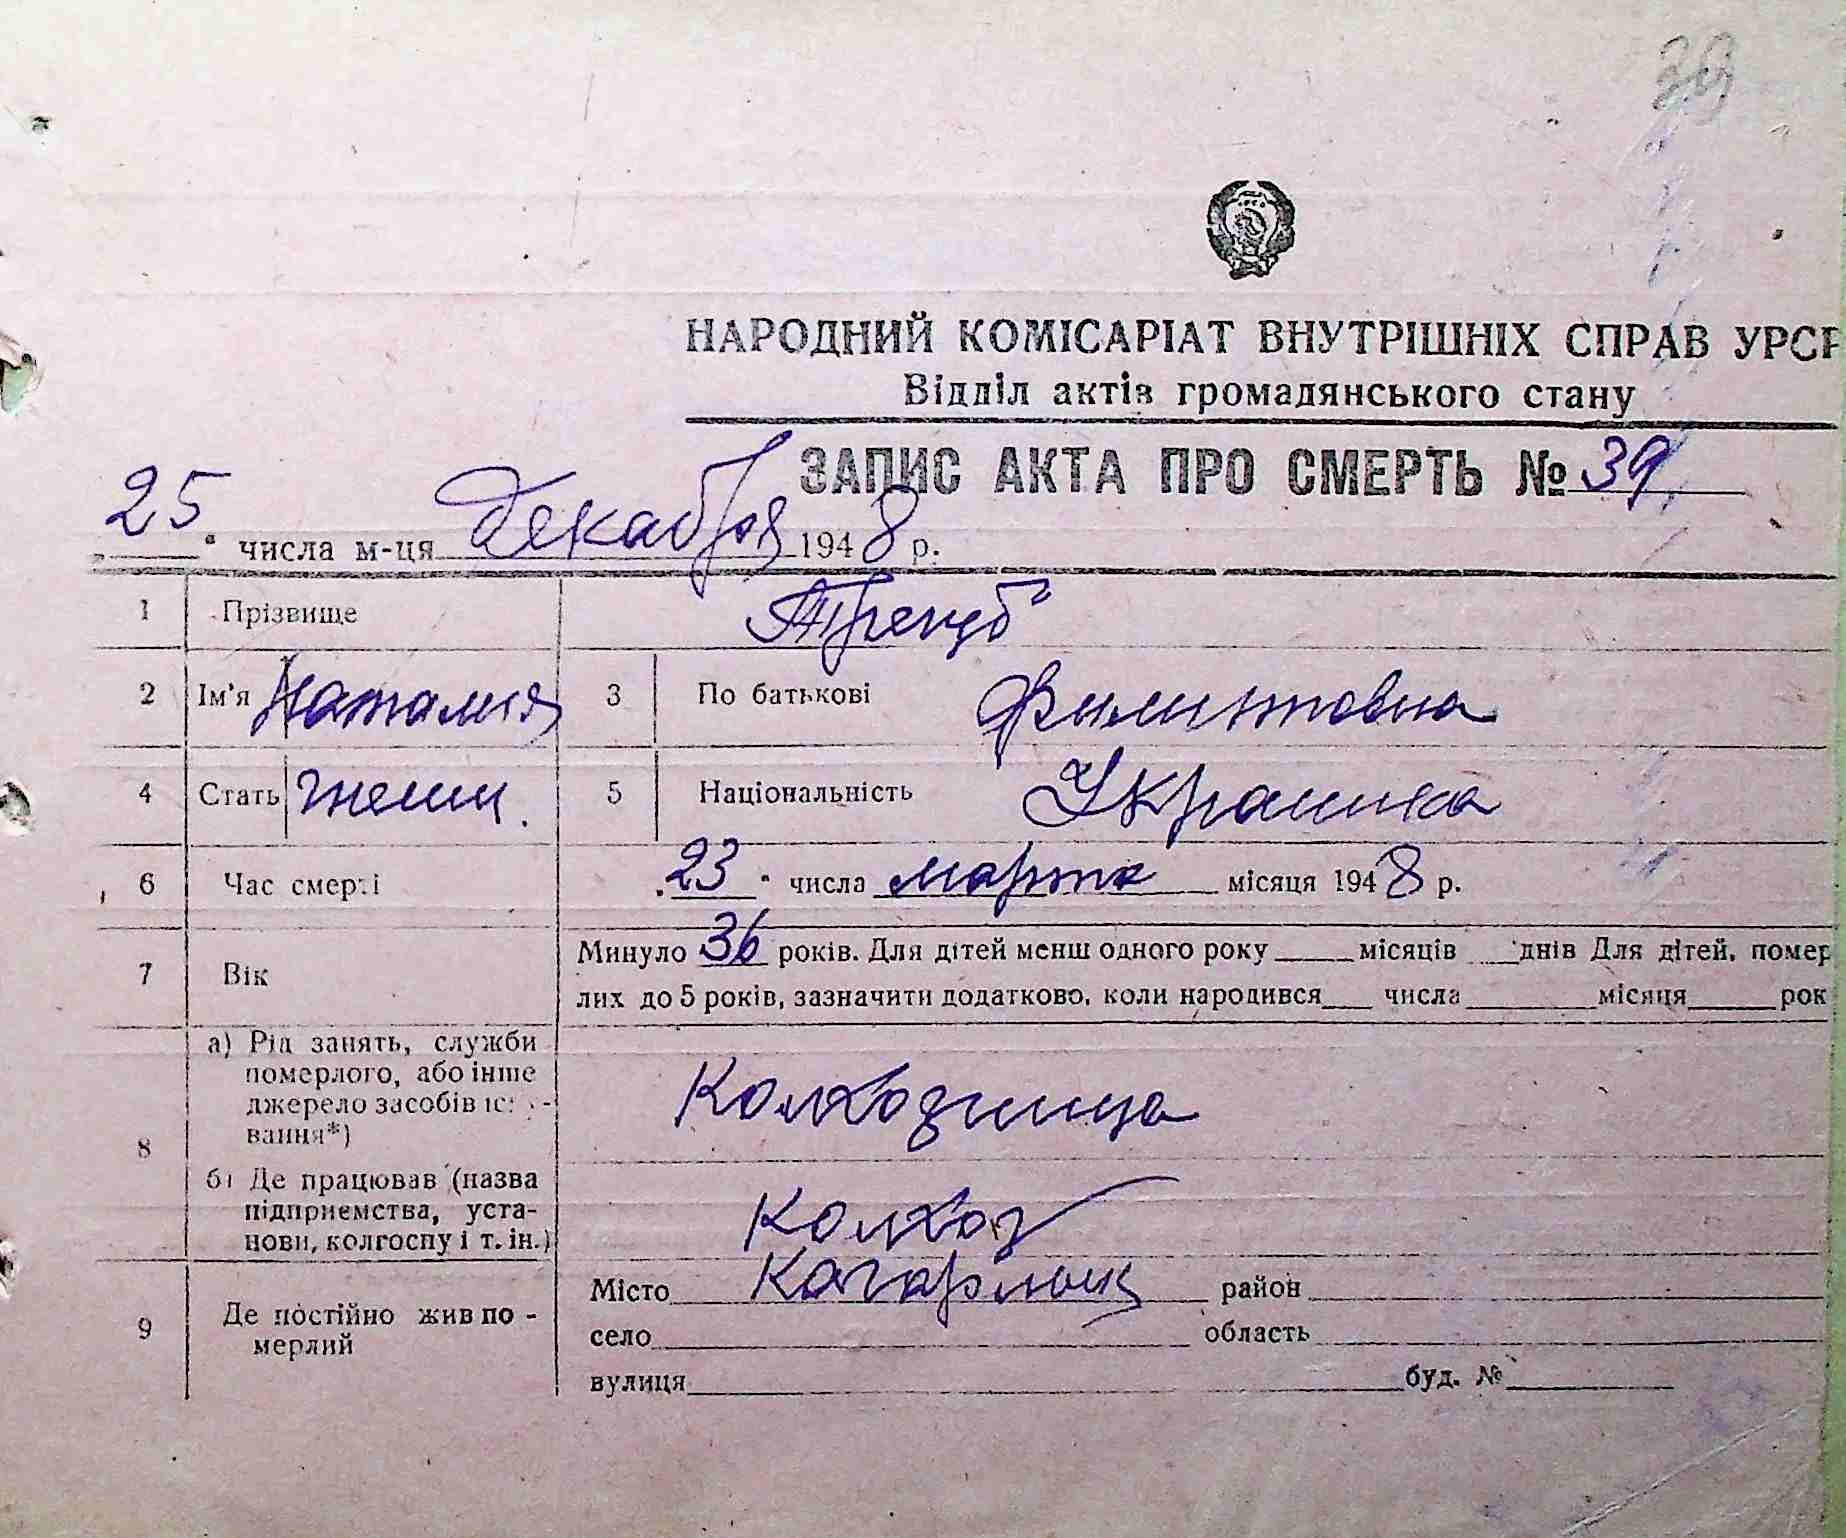 39
НАРОДНИЙ КОМІСАРІАТ ВНУТРІШНІХ СПРАВ УРСР
Відділ актів громадянського стану
ЗАПИС АКТА ПРО СМЕРТЬ № 39
25 числа м-ця Декабря 1948 р.
1 Прізвище
2 Ім'я Наталия 3 По батькові
4 Стать женщ. 5 Національність Украинка
6 Час смерті 23 числа марта місяця 1948 р.
7 Вік Минуло 36 років. Для дітей менш одного року місяців днів Для дітей, помер
лих до 5 років, зазначити додатково, коли народився числа місяця рок
8 а) Рід занять, служби
померлого, або інше
джерело засобів існу-
вання*) Колхозница
б) Де працював (назва
підприємства, уста-
нови, колгоспу і т. ін.) Колхоз
9 Де постійно жив по-
мерлий
Місто Кагарлык район
село область
вулиця буд. №